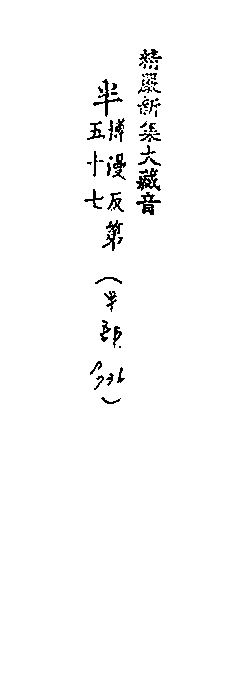 精嚴新集大藏音
半博漫反五十七第
(半部外)